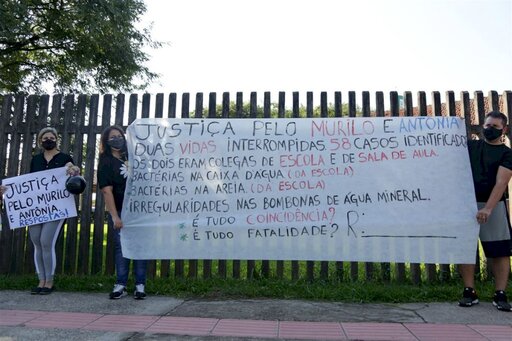 JUSTIÇA
PELO MURILO
E ANTÔNIA
RESPOSTAS!
JUSTIÇA PELO MURILO E ANTÔNIA
DUAS VIDAS INTERROMPIDAS 58 CASOS IDENTIFICADO
OS DOIS ERAM COLEGAS DE ESCOLA E DE SALA DE AULA.
BACTÉRIAS NA CAIXA D'AGUA (DA ESCOLA)
BACTÉRIAS NA AREIA (DA ESCOLA)
IRREGULARIDADES NAS BOMBONAS DE ÁGUA MINERAL.
* É TUDO COINCIDÊNCIA? R:
* É TUDO FATALIDADE?